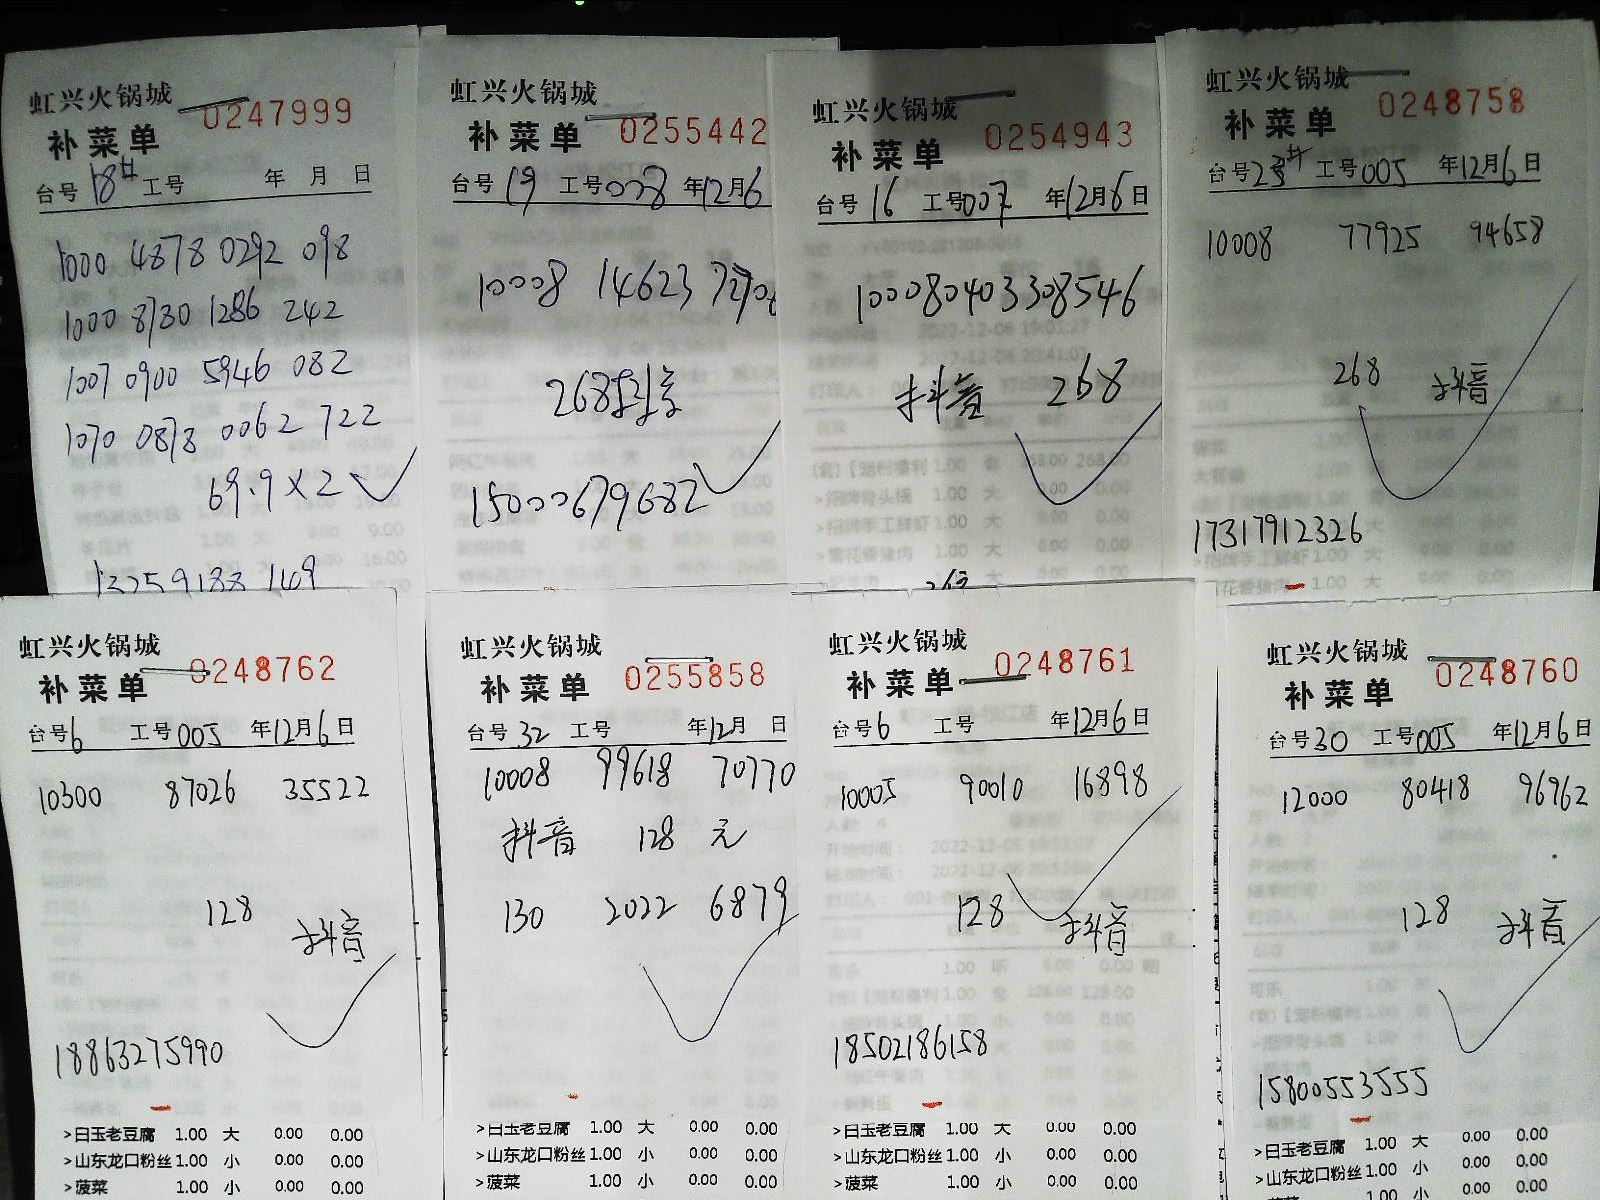 虹兴火锅城
0247999
补菜单
台号 18# 工号 年 月 日
1000 4878 0292 098
1000 8730 1286 242
1007 0900 5946 082
1070 0873 0062 722
69.9×2
虹兴火锅城
0255442
补菜单
台号 19 工号 008 年12月6
10008 14623
268抖音
15000679682
虹兴火锅城
0254943
补菜单
台号 16 工号 007 年12月6日
100080403308546
抖音 268
虹兴火锅城
0248758
补菜单
台号 23# 工号 005 年12月6日
10008 77925 94658
268 抖音
17317912326
虹兴火锅城
0248762
补菜单
台号 6 工号 005 年12月6日
10300 87026 35522
128 抖音
18863275990
>白玉老豆腐 1.00 大 0.00 0.00
>山东龙口粉丝 1.00 小 0.00 0.00
>菠菜 1.00 小 0.00 0.00
虹兴火锅城
0255858
补菜单
台号 32 工号 年12月 日
10008 99618 70770
抖音 128 元
130 2022 6879
>白玉老豆腐 1.00 大 0.00 0.00
>山东龙口粉丝 1.00 小 0.00 0.00
>菠菜 1.00 小 0.00 0.00
虹兴火锅城
0248761
补菜单
台号 6 工号 年12月6日
10005 90010 16898
128 抖音
18502186158
>白玉老豆腐 1.00 大 0.00 0.00
>山东龙口粉丝 1.00 小 0.00 0.00
>菠菜 1.00 小 0.00 0.00
虹兴火锅城
0248760
补菜单
台号 30 工号 005 年12月6日
12000 80418 96962
128 抖音
15800553555
>白玉老豆腐 1.00 大 0.00 0.00
>山东龙口粉丝 1.00 小 0.00 0.00
>菠菜 1.00 小 0.00 0.00